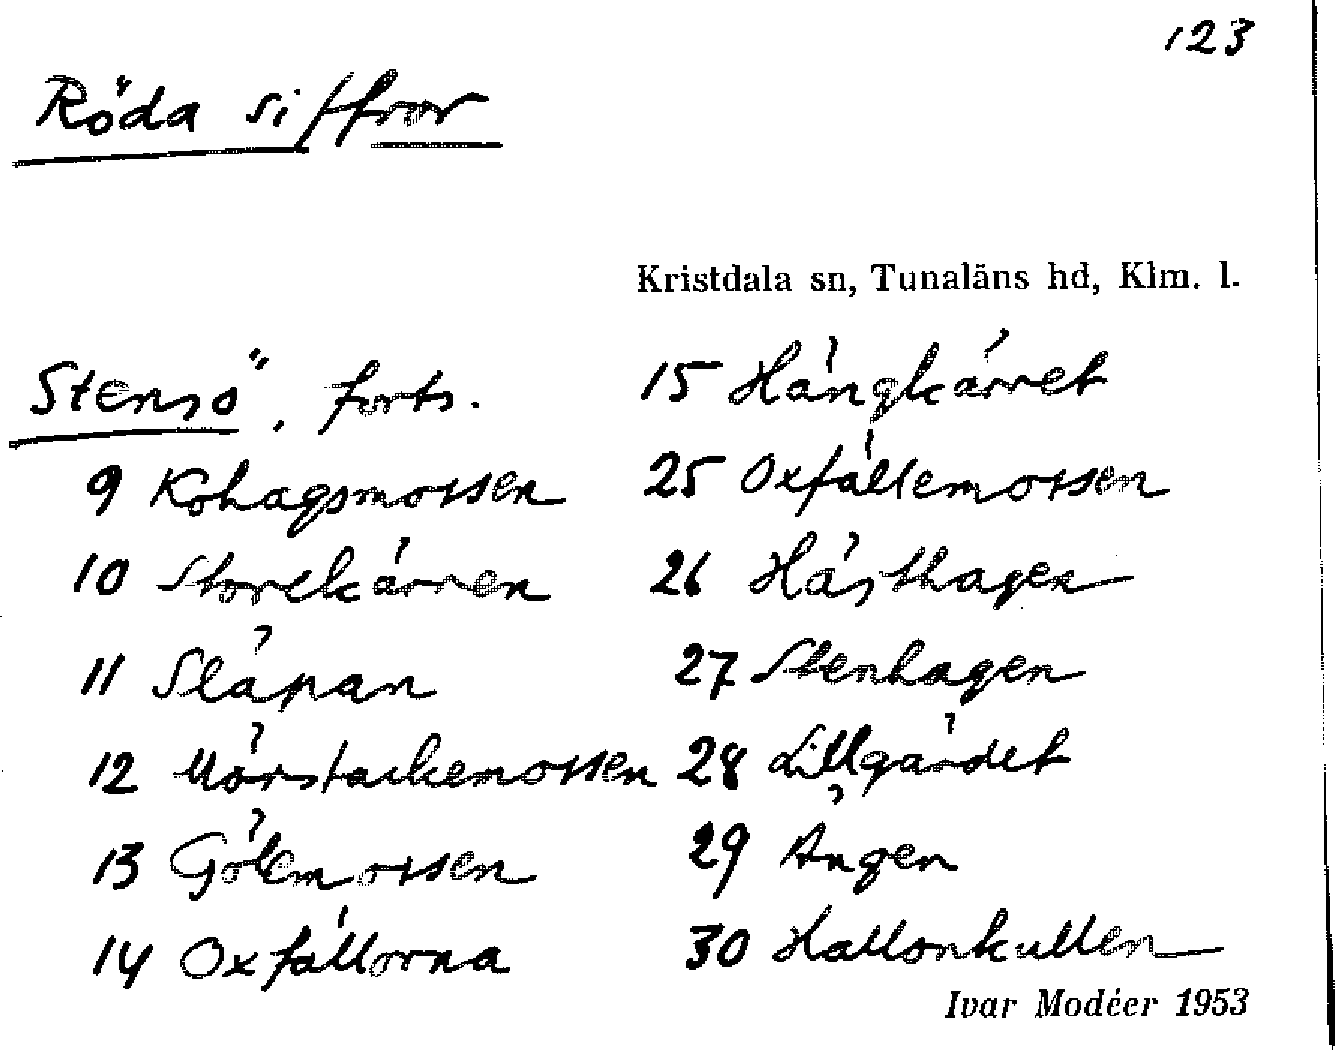 123
Röda siffror
Kristdala sn, Tunaläns hd, Klm. l.
Stensö, forts.
9 Kohagsmossen
10 Storekärren
11 Släpan
12 Mörstackemossen
13 Gölemossen
14 Oxfällorna
15 Hängkärret
25 Oxfällemossen
26 Hästhagen
27 Stenhagen
28 Lillgärdet
29 Ängen
30 Hallonkullen
Ivar Modéer 1953